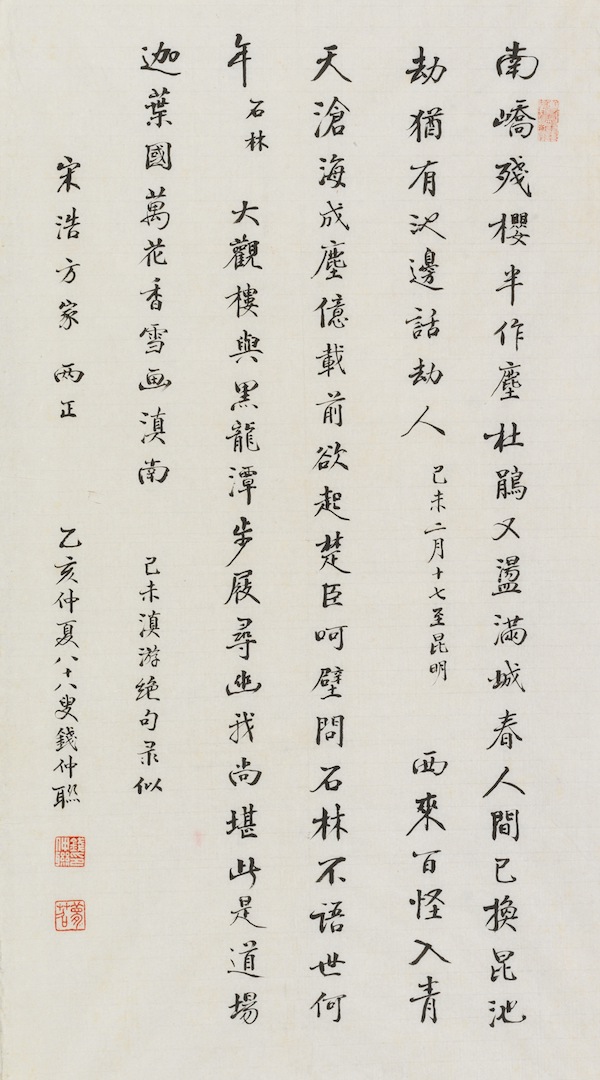 南嶠殘櫻半作塵杜鵑又盪滿城春人間已換昆池
劫猶有池邊話劫人 己未二月十七至昆明 西來百怪入青
天滄海成塵億載前欲起楚臣呵壁問石林不語世何
年 石林 大觀樓與黑龍潭步屐尋幽我尚堪此是道場
迦葉國萬花香雪画滇南 己未滇游绝句录似
宋浩方家 两正 乙亥仲夏八十八叟錢仲聯
錢仲聯印
夢苕